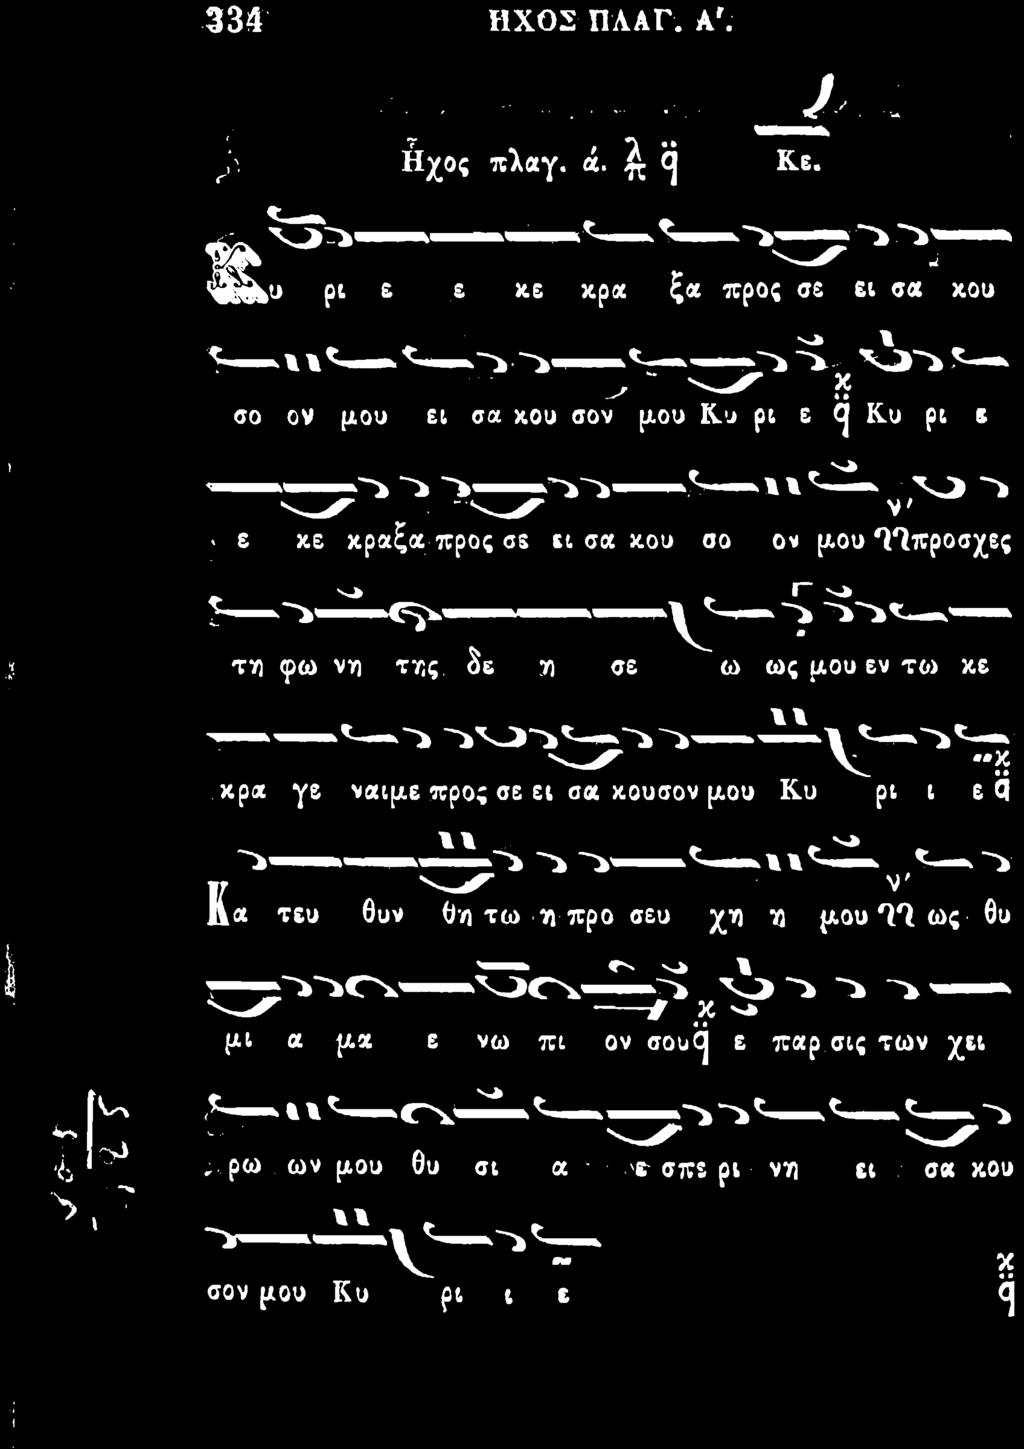 334 ΗΧΟΣ ΠΛΑΓ. Α'.
Ἦχος πλαγ. ά. λ π q Κε.
Κυ ρι ε ε κε κρα ξα προς σε ει σα κου
σο ον μου ει σα κου σον μου Κυ ρι ε q Κυ ρι ε
ε κε κραξα προς σε ει σα κου σο ον μου προσχες
τη φω νη της δε η σε ω ως μου εν τω κε
κρα γε ναι με προς σε ει σα κουσον μου Κυ ρι ι ε q
Κα τευ θυν θη τω η προ σευ χη η μου ως θυ
μι α μα ε νω πι ον σου q ε παρ σις των χει
ρω ων μου θυ σι α ε σπε ρι νη ει σα κου
σον μου Κυ ρι ι ε q